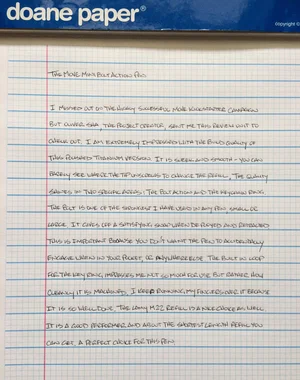 doane paper®
copyright ©
The Mover Mini Bolt Action Pen
I missed out on the highly successful Mover Kickstarter campaign
but Oliver Sha, the project creator, sent me this review unit to
check out. I am extremely impressed with the build quality of
this polished titanium version. It is sleek and smooth - you can
barely see where the tip unscrews to change the refill. The quality
shines in two specific areas: the bolt action and the key chain ring.
The bolt is one of the strongest I have used in any pen, small or
large. It gives off a satisfying snap when deployed and retracted
This is important because you don't want the pen to accidentally
engage when in your pocket, or anywhere else. The built in loop
for the key ring impresses me not so much for use but rather how
cleanly it is machined. I keep running my fingers over it because
it is so well done. The Lamy M22 refill is a nice choice as well
It is a good performer and about the shortest length refill you
can get. A perfect choice for this pen.